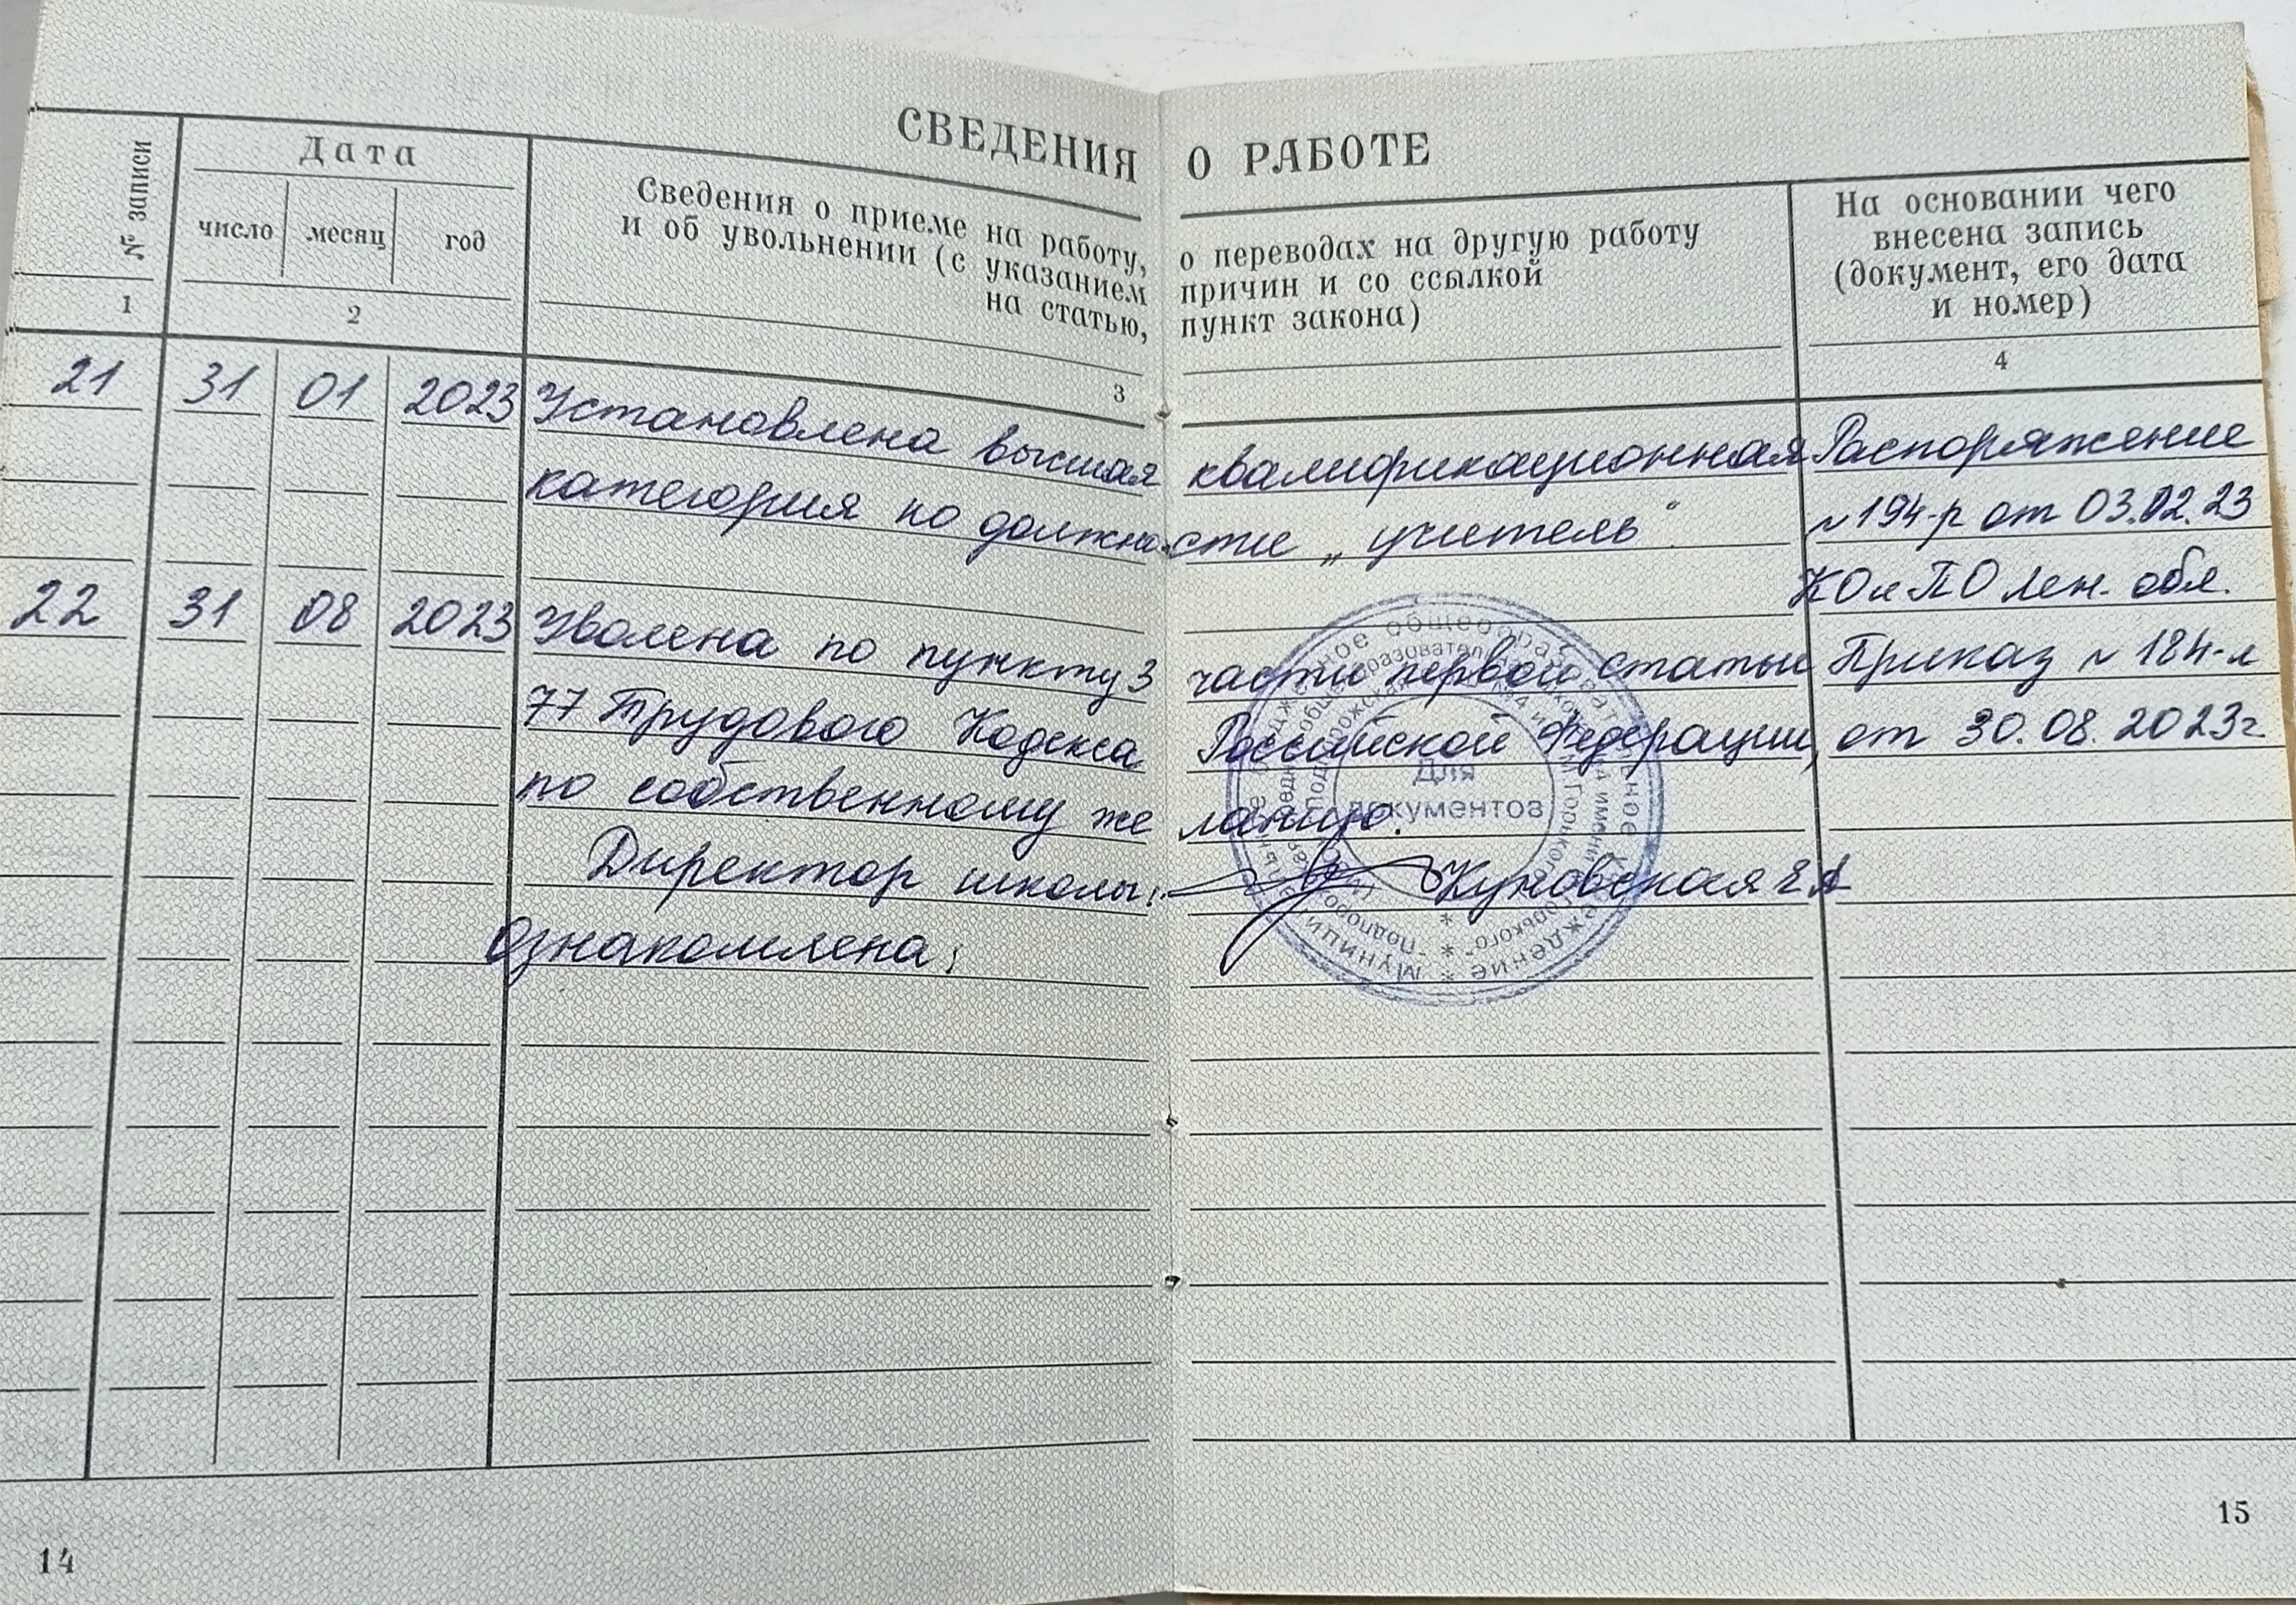 СВЕДЕНИЯ О РАБОТЕ
№ записи
Дата
число месяц год
Сведения о приеме на работу, о переводах на другую работу
и об увольнении (с указанием причин и со ссылкой
на статью, пункт закона)
На основании чего
внесена запись
(документ, его дата
и номер)
1 2 3 4
21 31 01 2023 Установлена высшая квалификационная Распоряжение
категория по должности „учитель“ №194-р от 03.02.23
КО и ПО Лен. обл.
22 31 08 2023 Уволена по пункту 3 части первой статьи Приказ № 184-л
77 Трудового Кодекса Российской Федерации, от 30.08.2023г.
по собственному желанию.
Директор школы: Куновская Е А
Ознакомлена:
Для
документов
14
15